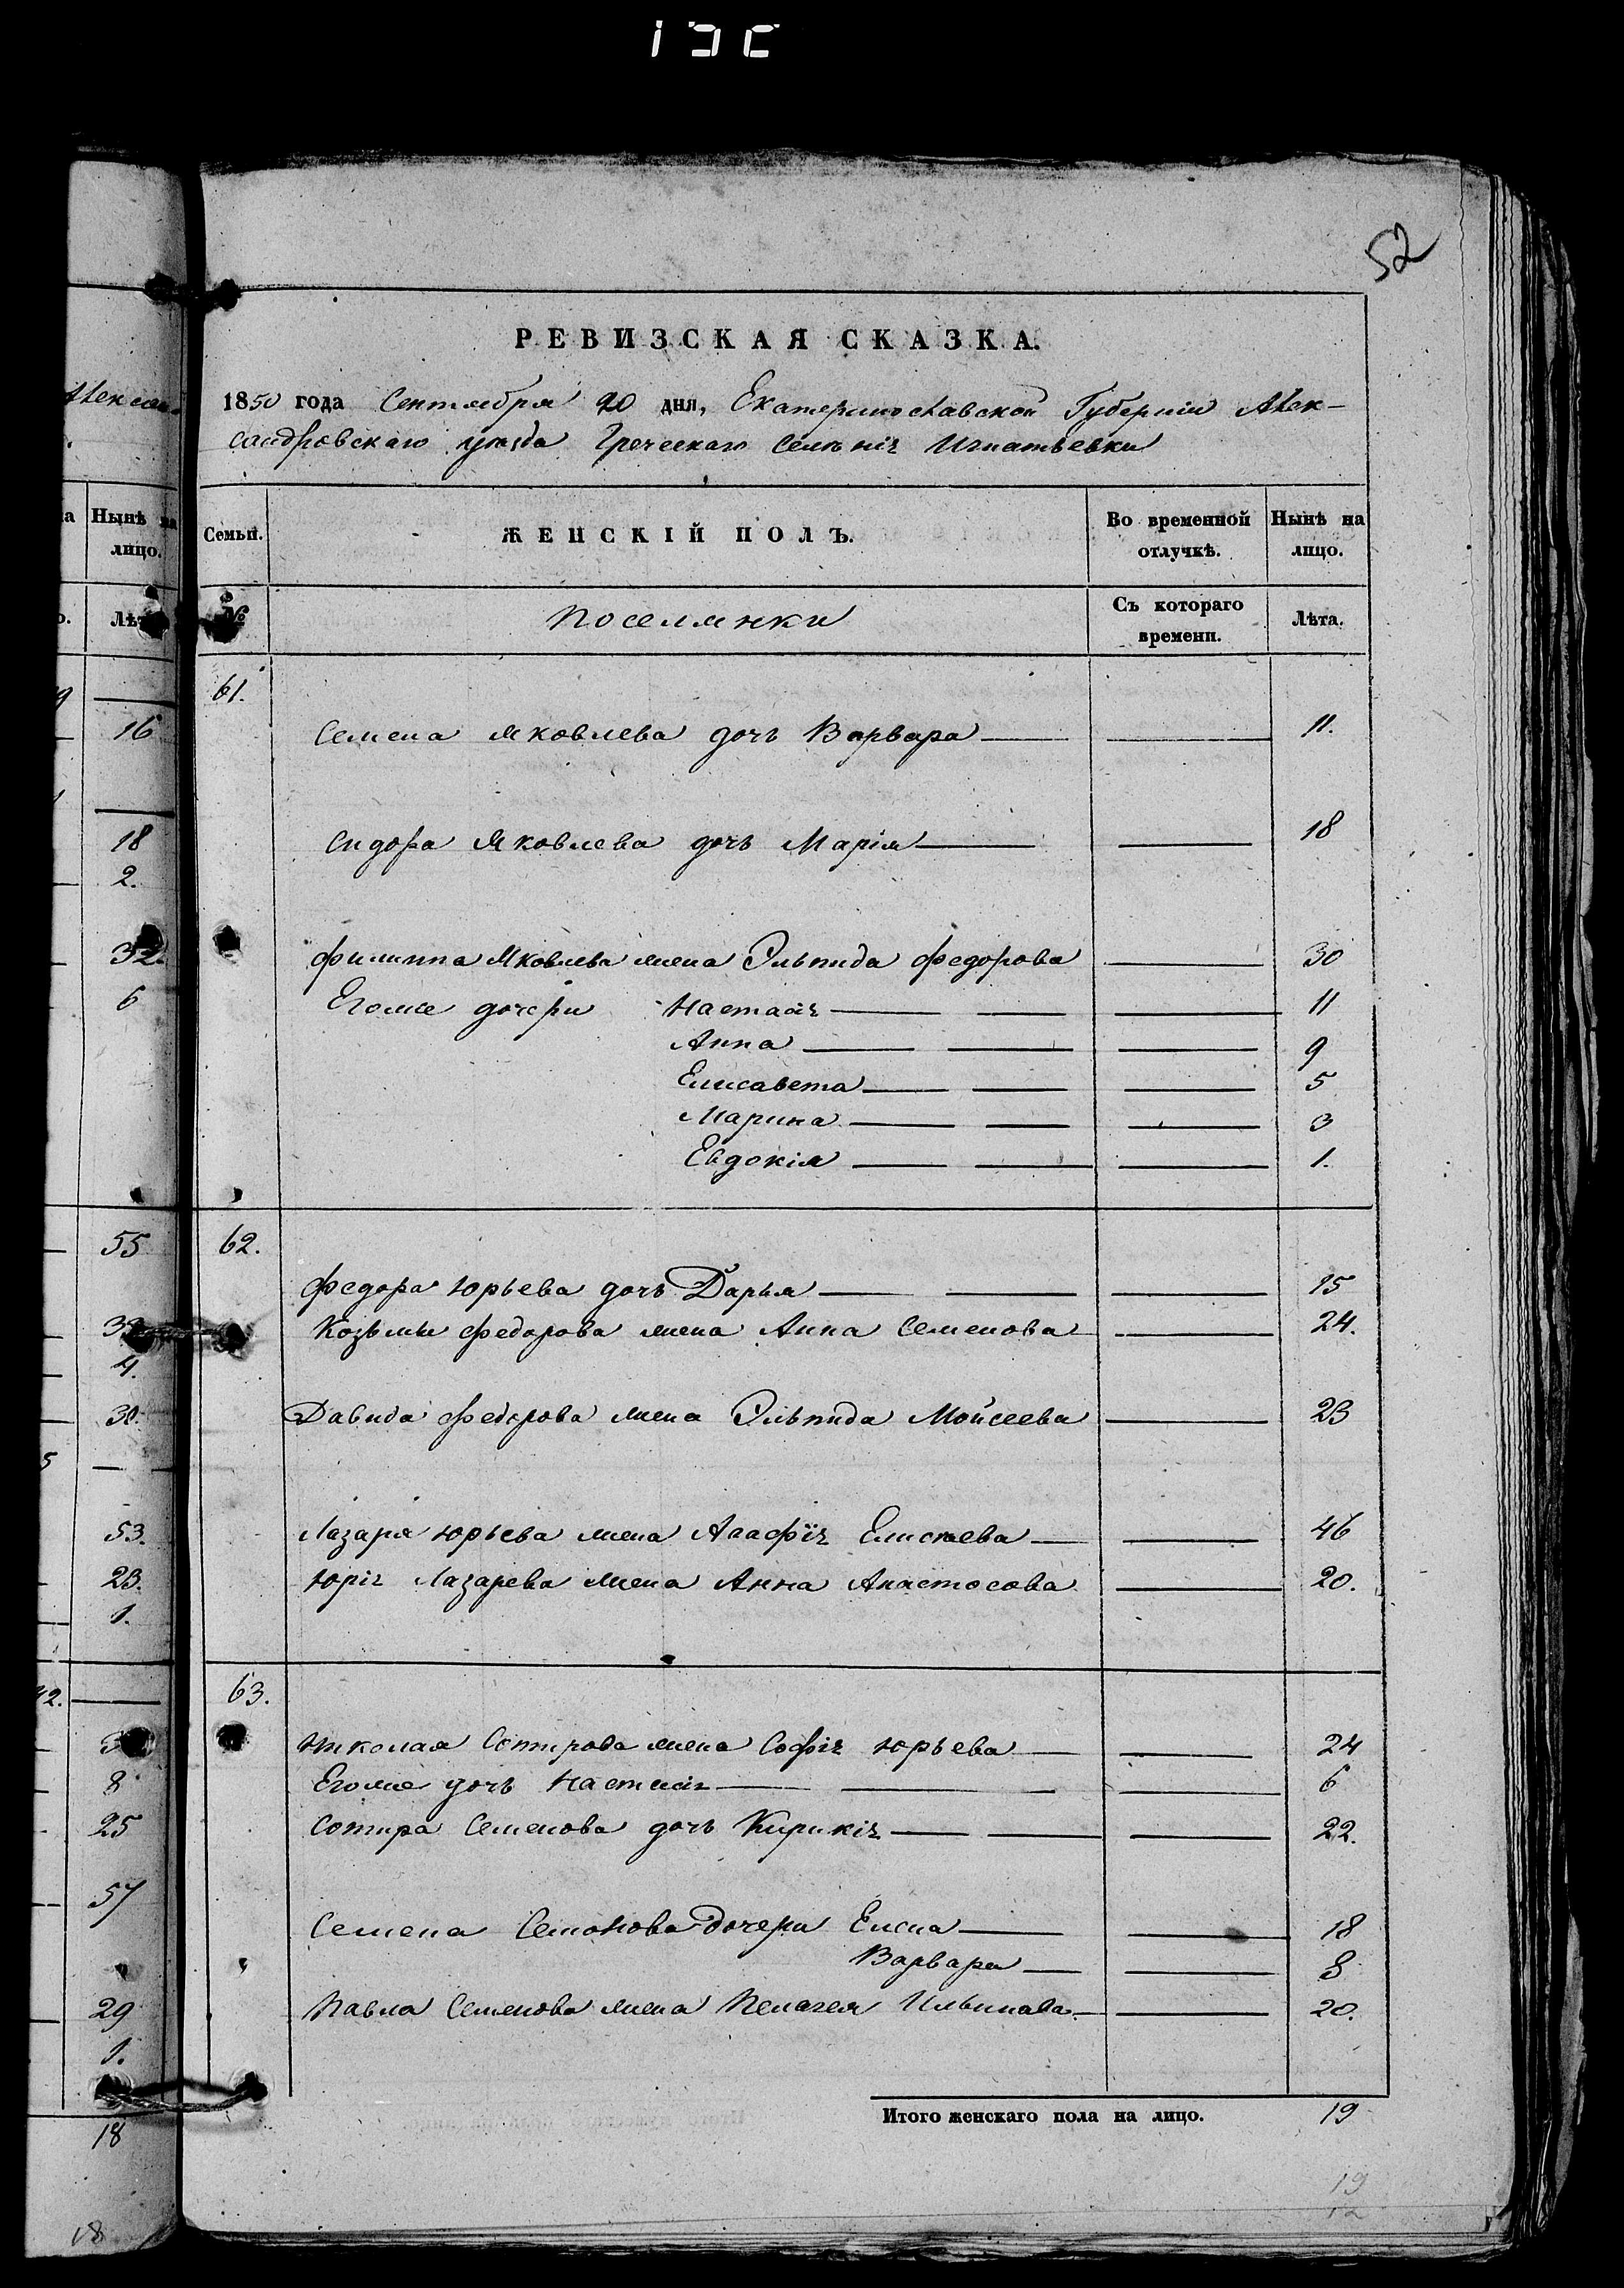 52
РЕВИЗСКАЯ СКАЗКА.
1850 года Сентября 20 дня, Екатеринославской Губернии Алек-
сандровскаго уезда Греческаго Селенія Игнатьевки
Семьи. ЖЕНСКІЙ ПОЛЪ. Во временной отлучкѣ. Нынѣ на лицо.
№ Поселянки Съ котораго времени. Лѣта.
61.
Семена Яковлева дочь Варвара 11.
Сидора Яковлева дочь Марія 18
Филиппа Яковлева жена Эльпида Федорова 30
Егоже дочери Настасія 11
Анна 9
Елисавета 5
Марина 3
Евдокія 1.
62.
Федора Юрьева дочь Дарья 15
Козьмы Федорова жена Анна Семенова 24.
Давида Федорова жена Эльпида Мойсеева 23
Лазаря Юрьева жена Агафія Елисеева 46
Юрія Лазарева жена Анна Анастосова 20.
63.
Николая Сотирова жена Софія Юрьева 24
Егоже дочь Настасія 6
Сотира Семенова дочь Кирикія 22.
Семена Семонова дочери Елена 18
Варвара 8
Павла Семенова жена Пелагея Ильинова 20.
Итого женскаго пола на лицо. 19
19
Нынѣ на
лицо.
16
18
2.
32.
6
55
4.
30.
53.
23.
1.
42.
8
25
57
29
1.
18
18